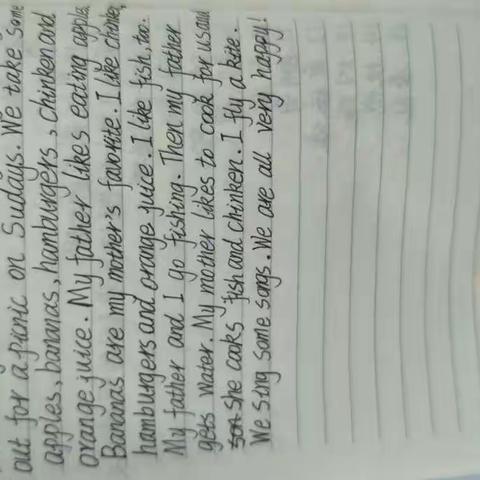 out for a picnic on Sudays. We take some
apples, bananas, hamburgers, chinken and
orange juice. My father likes eating apples
Bananas are my mother's favorite. I like chinken,
hamburgers and orange juice. I like fish, too.
My father and I go fishing. Then my father
gets water. My mother likes to cook for us and
she cooks fish and chinken. I fly a kite.
We sing some songs. We are all very happy!